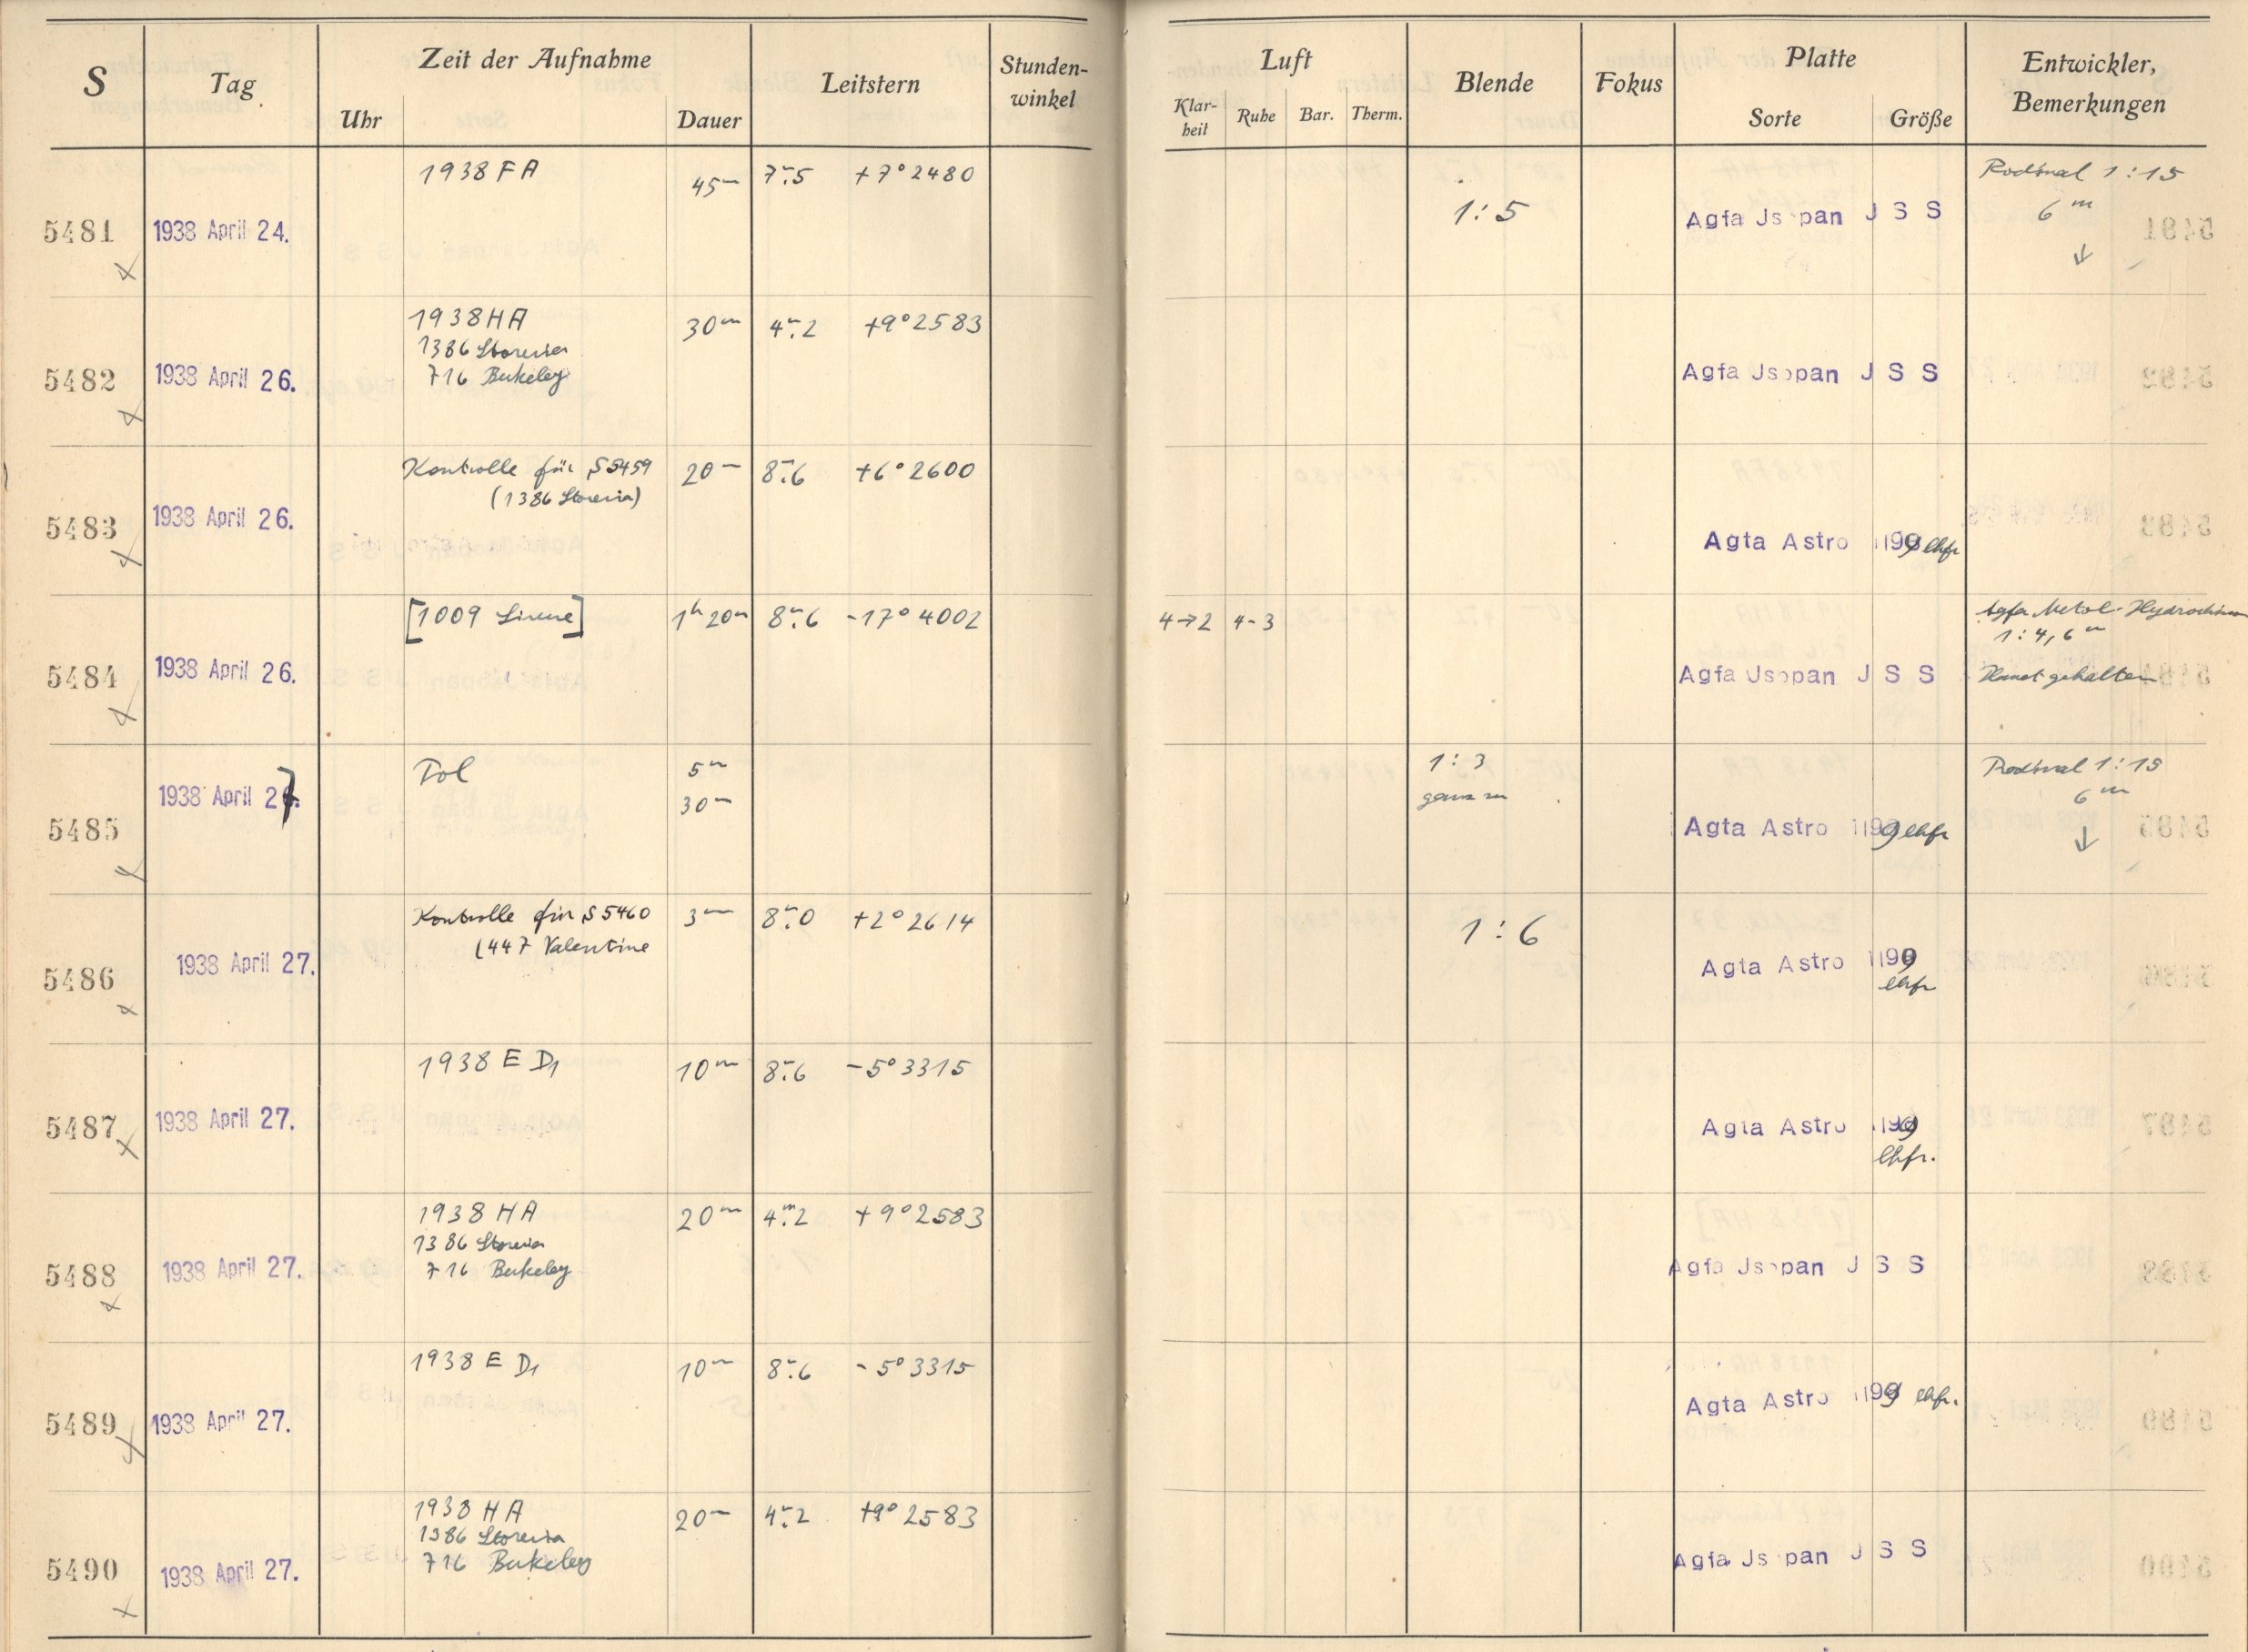 S Tag Zeit der Aufnahme Leitstern Stunden-winkel Luft Blende Fokus Platte Entwickler, Bemerkungen
Uhr Dauer Klar-heit Ruhe Bar. Therm. Sorte Größe
5481 1938 April 24. 1938 FA 45m 7m.5 +7° 2480 1:5 Agfa Jsopan J S S Rodinal 1:15
6m
↓
5482 1938 April 26. 1938 HA 30m 4m.2 +9° 2583 Agfa Jsopan J S S
1386 Storeria
716 Berkeley
5483 1938 April 26. Kontrolle für S 5459 20m 8m.6 +6° 2600 Agfa Astro 1199 lhfr
(1386 Storeria)
5484 1938 April 26. [1009 Sirene] 1h 20m 8m.6 -17° 4002 4→2 4-3 Agfa Jsopan J S S Agfa Metol-Hydrochinon
1:4, 6m
Planet gehalten
5485 1938 April 27. Pol 5m 1:3 Agfa Astro 1199 lhfr Rodinal 1:15
30m ganz zu 6m
↓
5486 1938 April 27. Kontrolle für S 5460 3m 8m.0 +2° 2614 1:6 Agfa Astro 1199
(447 Valentine lhfr
5487 1938 April 27. 1938 E D1 10m 8m.6 -5° 3315 Agfa Astro 1199
lhfr.
5488 1938 April 27. 1938 HA 20m 4m.2 +9° 2583 Agfa Jsopan J S S
1386 Storeria
716 Berkeley
5489 1938 April 27. 1938 E D1 10m 8m.6 -5° 3315 Agfa Astro 1199 lhfr.
5490 1938 April 27. 1938 HA 20m 4m.2 +9° 2583 Agfa Jsopan J S S
1386 Storeria
716 Berkeley